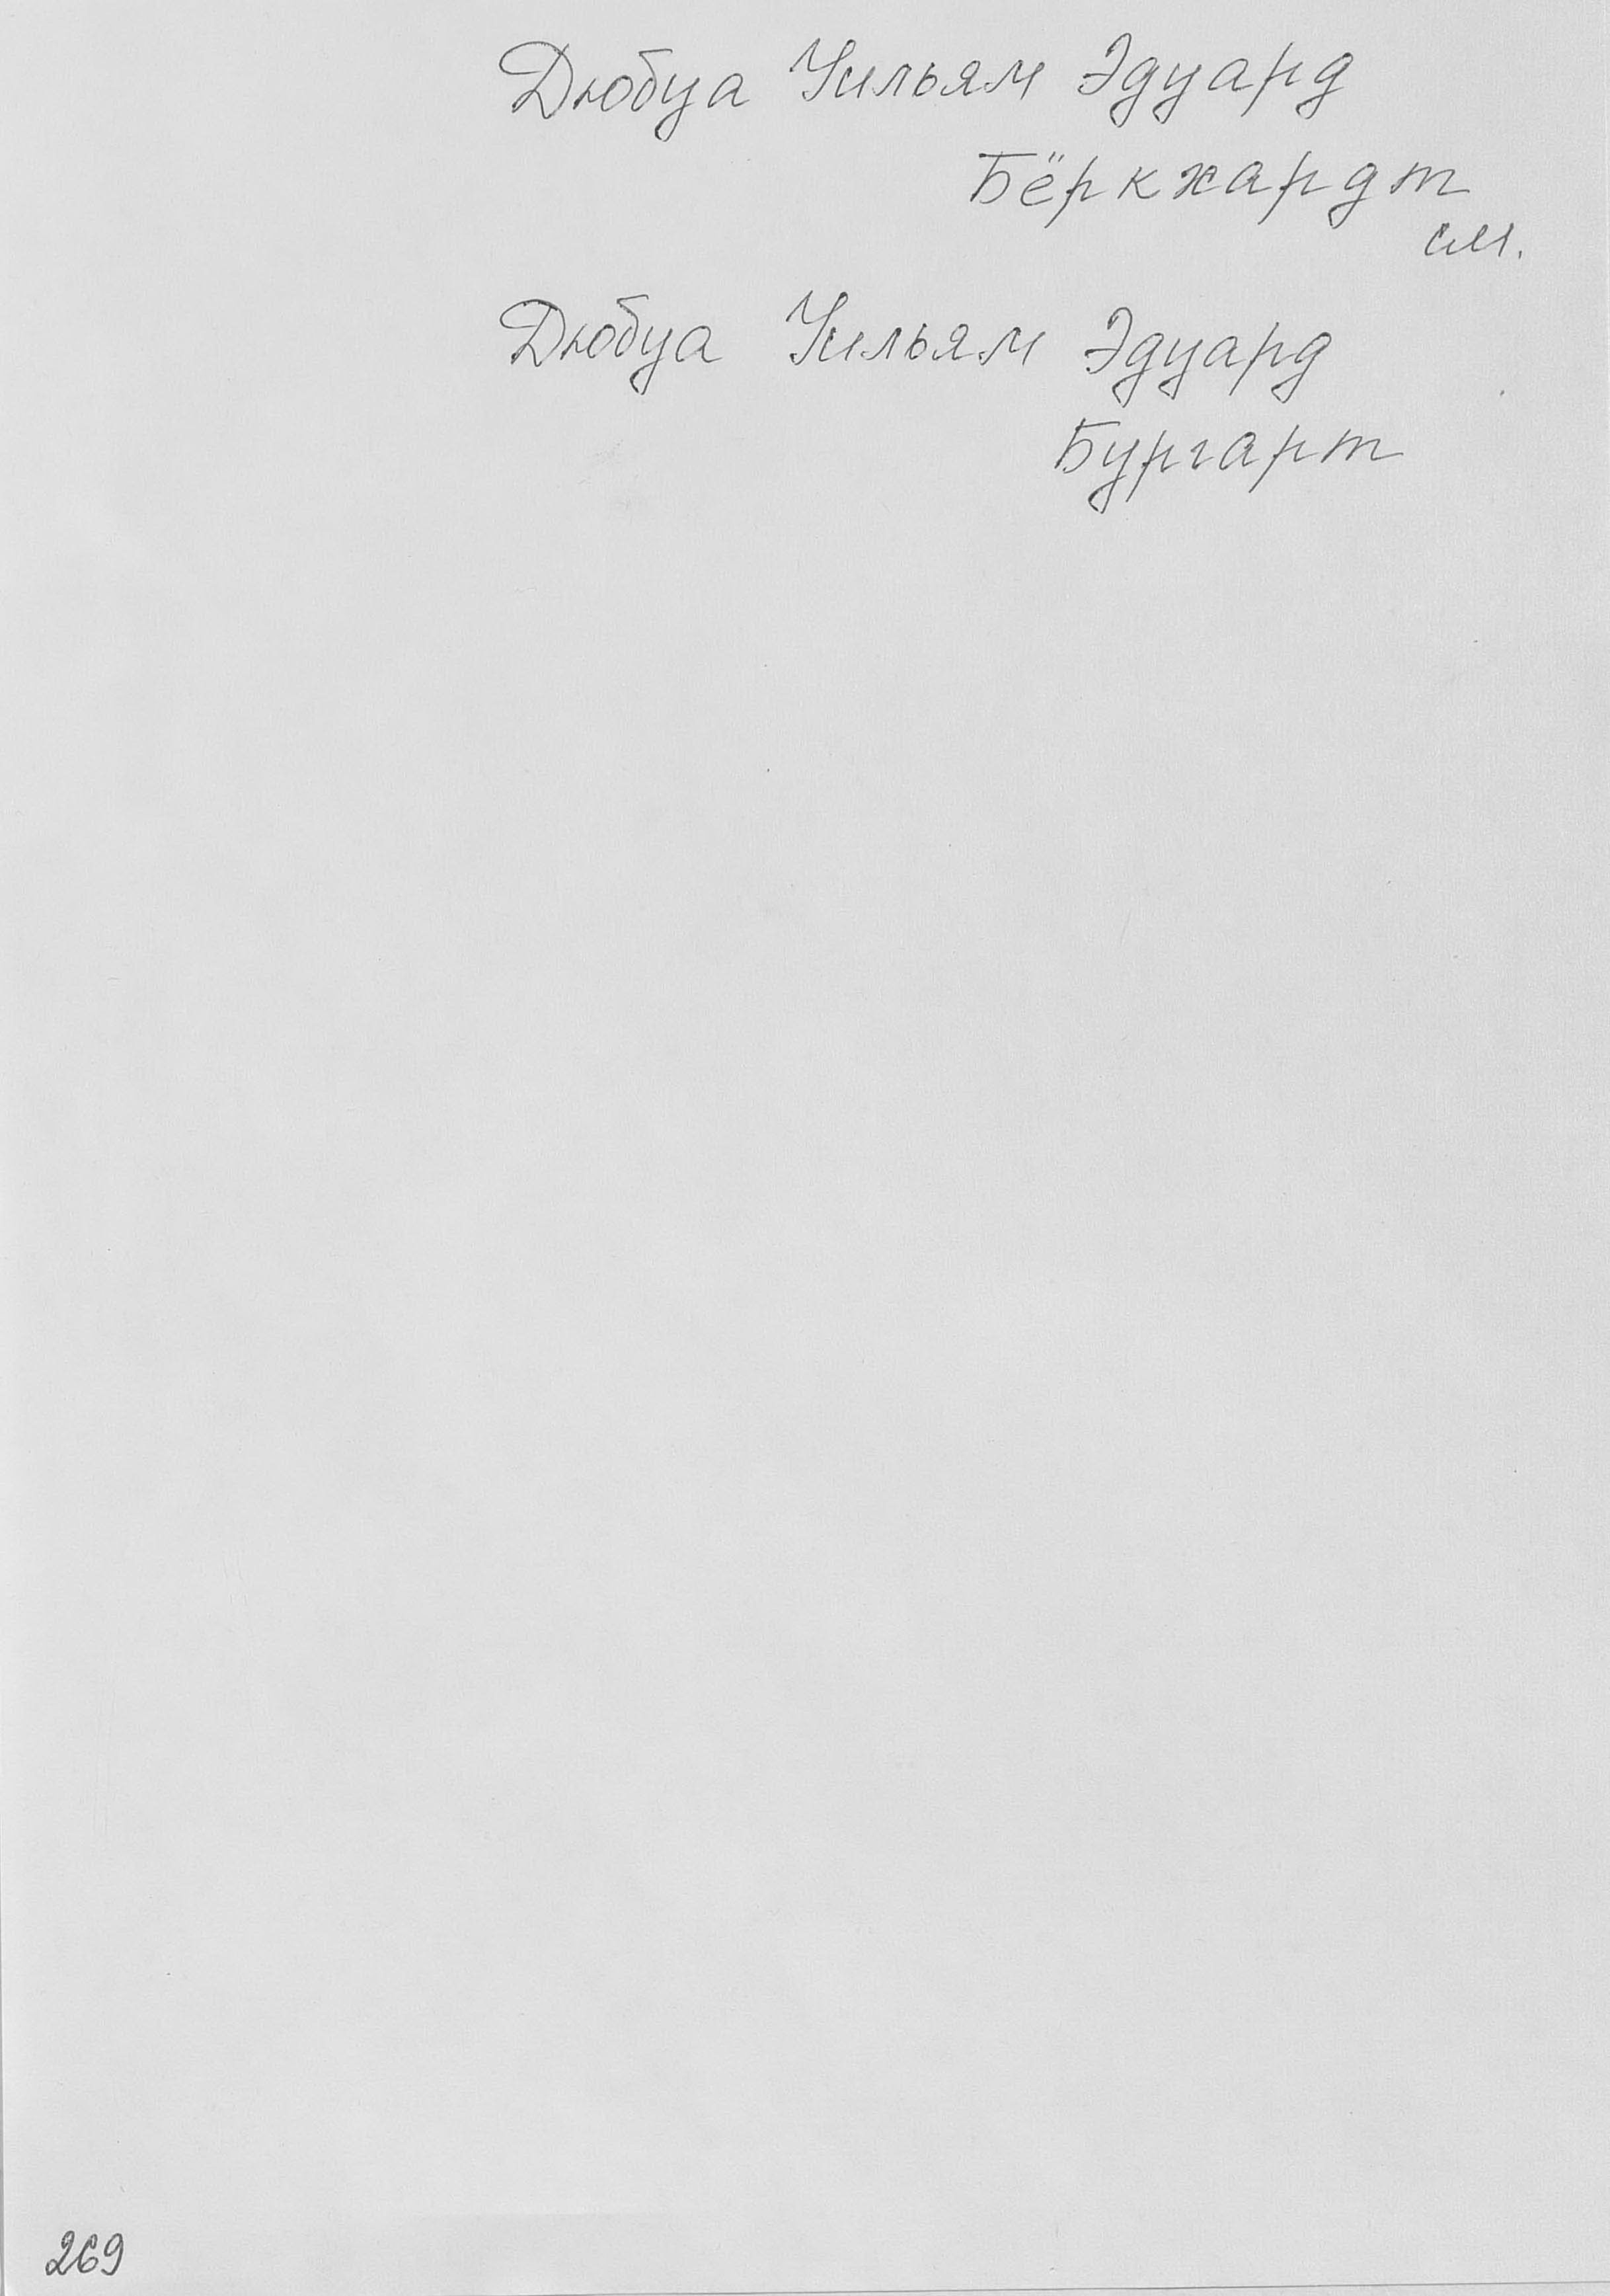 Дюбуа Уильям Эдуард
Бёркхардт
см.
Дюбуа Уильям Эдуард
Бургарт
269